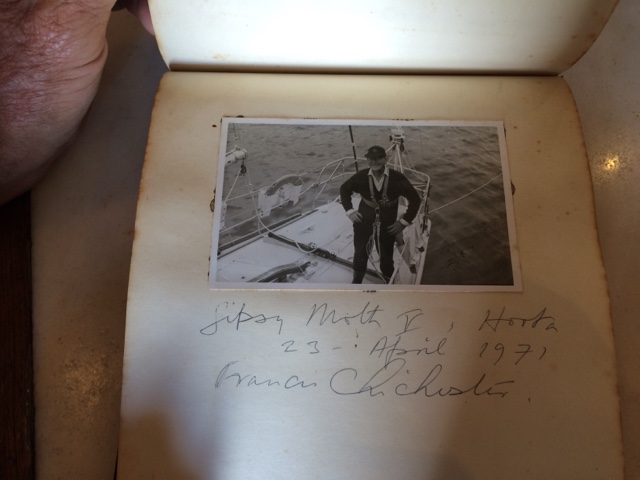 Gipsy Moth V, Horta
23 - April 1971
Francis Chichester.